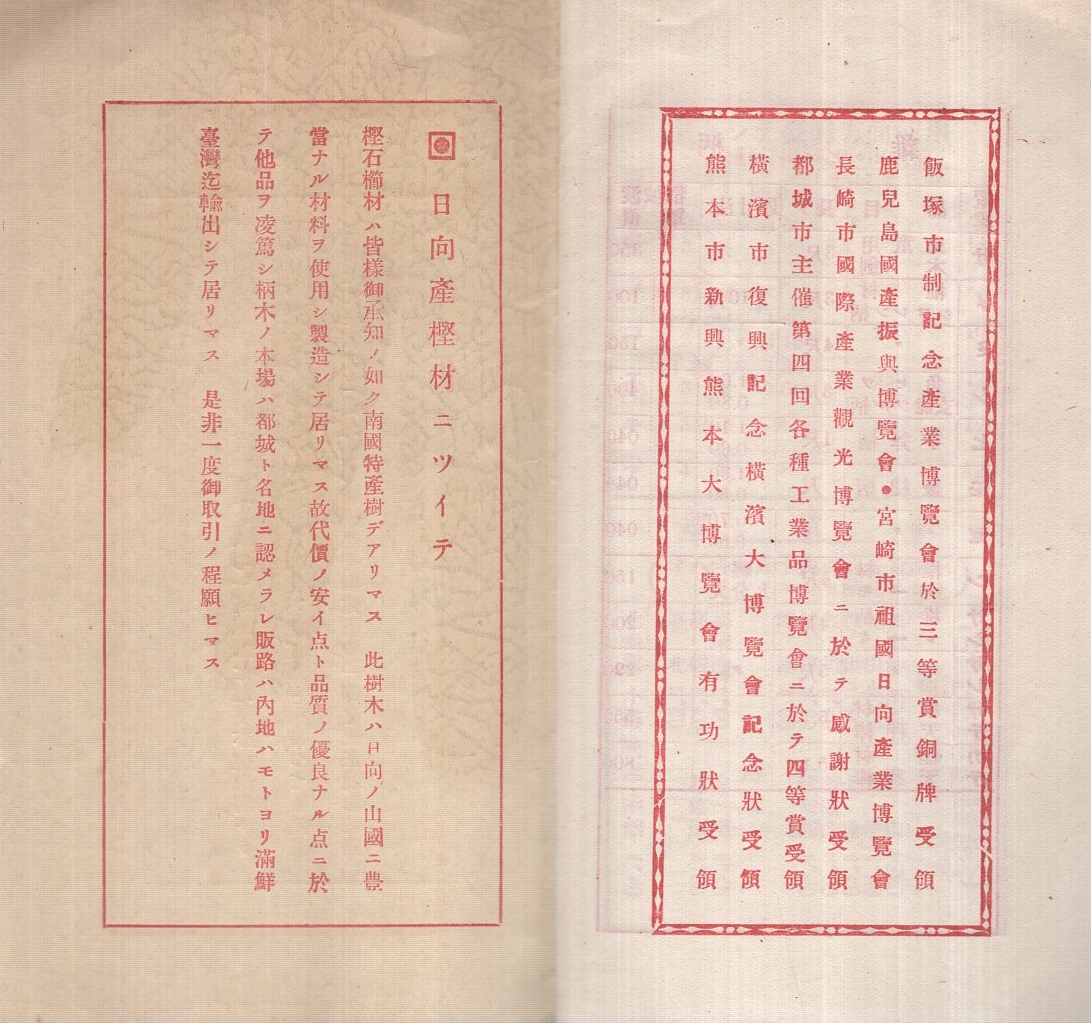 飯塚市制記念產業博覽會於三等賞銅牌受領
鹿兒島國產振興博覽會●宮崎市祖國日向產業博覽會
長崎市國際產業觀光博覽會ニ於テ感謝狀受領
都城市主催第四回各種工業品博覽會ニ於テ四等賞受領
橫濱市復興記念橫濱大博覽會記念狀受領
熊本市新興熊本大博覽會有功狀受領
日向產樫材ニツイテ
樫石櫛材ハ皆樣御承知ノ如ク南國特產樹デアリマス 此樹木ハ日向ノ山國ニ豊
當ナル材料ヲ使用シ製造シテ居リマス故代價ノ安イ点ト品質ノ優良ナル点ニ於
テ他品ヲ凌篤シ柄木ノ本場ハ都城ト名地ニ認メラレ販路ハ內地ハモトヨリ滿鮮
臺灣迄輸出シテ居リマス 是非一度御取引ノ程願ヒマス